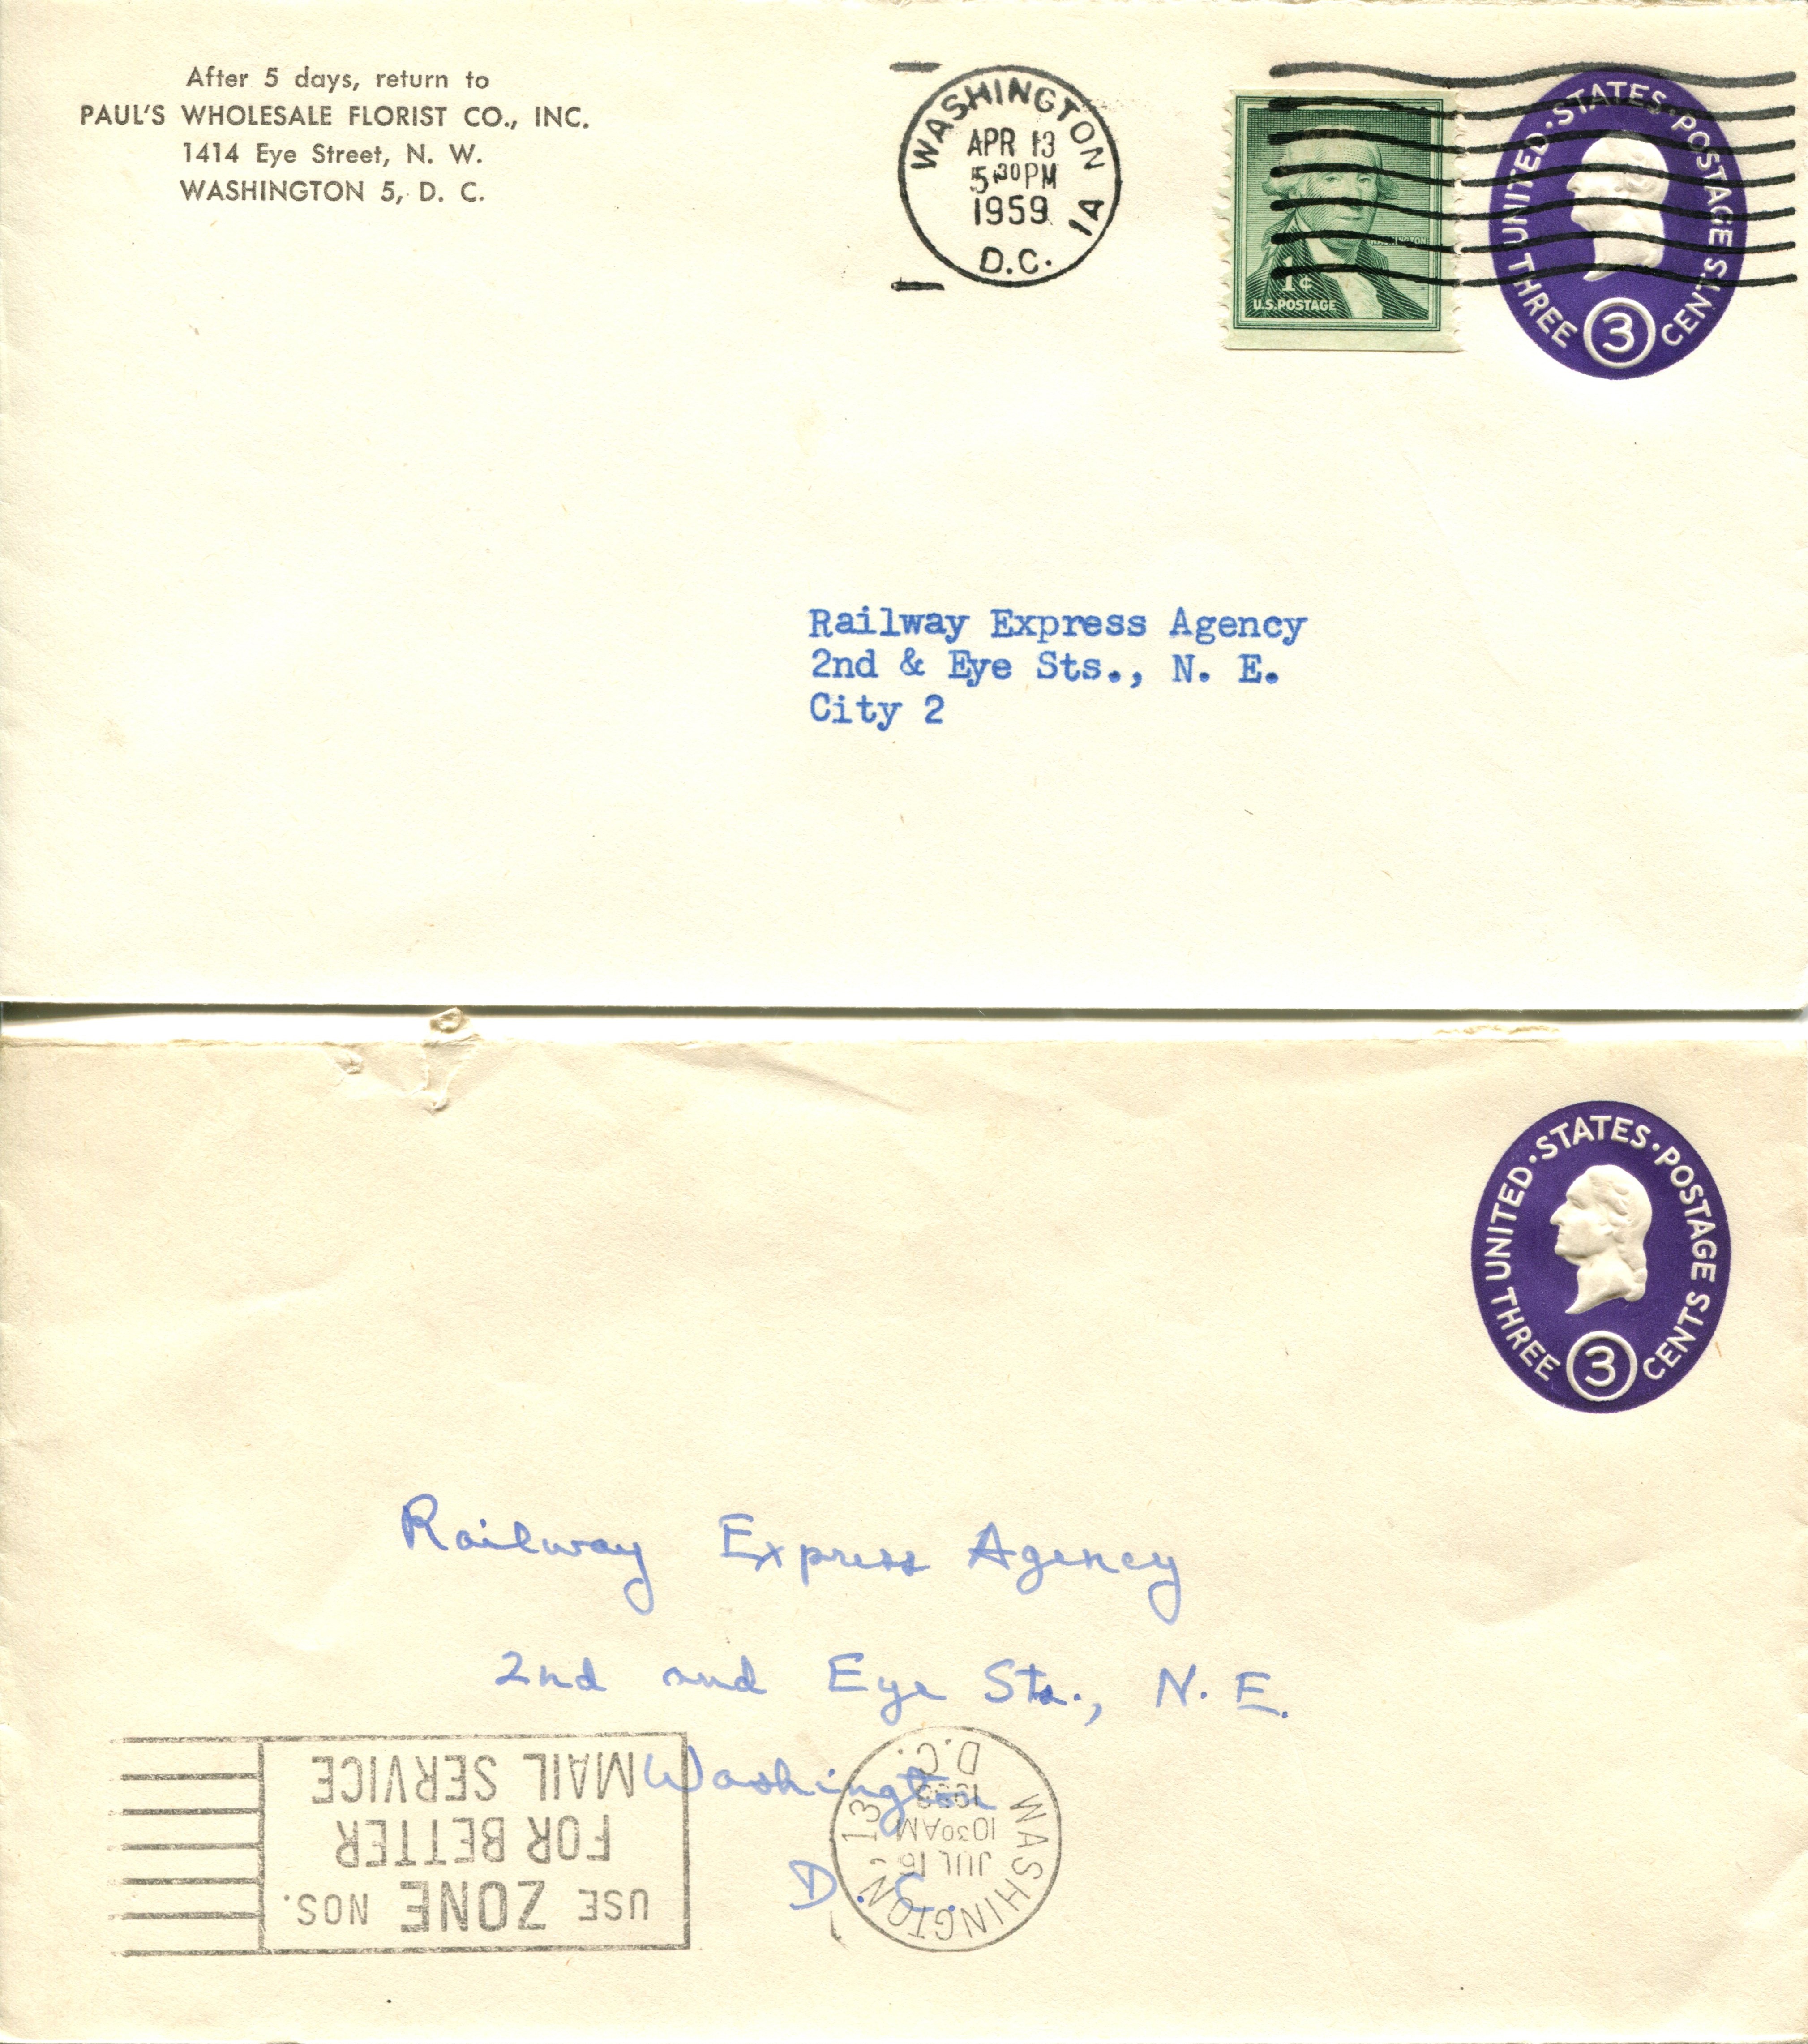 After 5 days, return to
PAUL'S WHOLESALE FLORIST CO., INC.
1414 Eye Street, N. W.
WASHINGTON 5, D. C.
WASHINGTON
APR 13
5 30 PM
1959
D.C.
1A
WASHINGTON
1¢
U.S. POSTAGE
UNITED · STATES · POSTAGE
THREE 3 CENTS
Railway Express Agency
2nd & Eye Sts., N. E.
City 2
UNITED · STATES · POSTAGE
THREE 3 CENTS
Railway Express Agency
2nd and Eye Sts., N. E.
Washington
D. C.
WASHINGTON, 13
JUL 16
10 30 AM
D.C.
USE ZONE NOS.
FOR BETTER
MAIL SERVICE